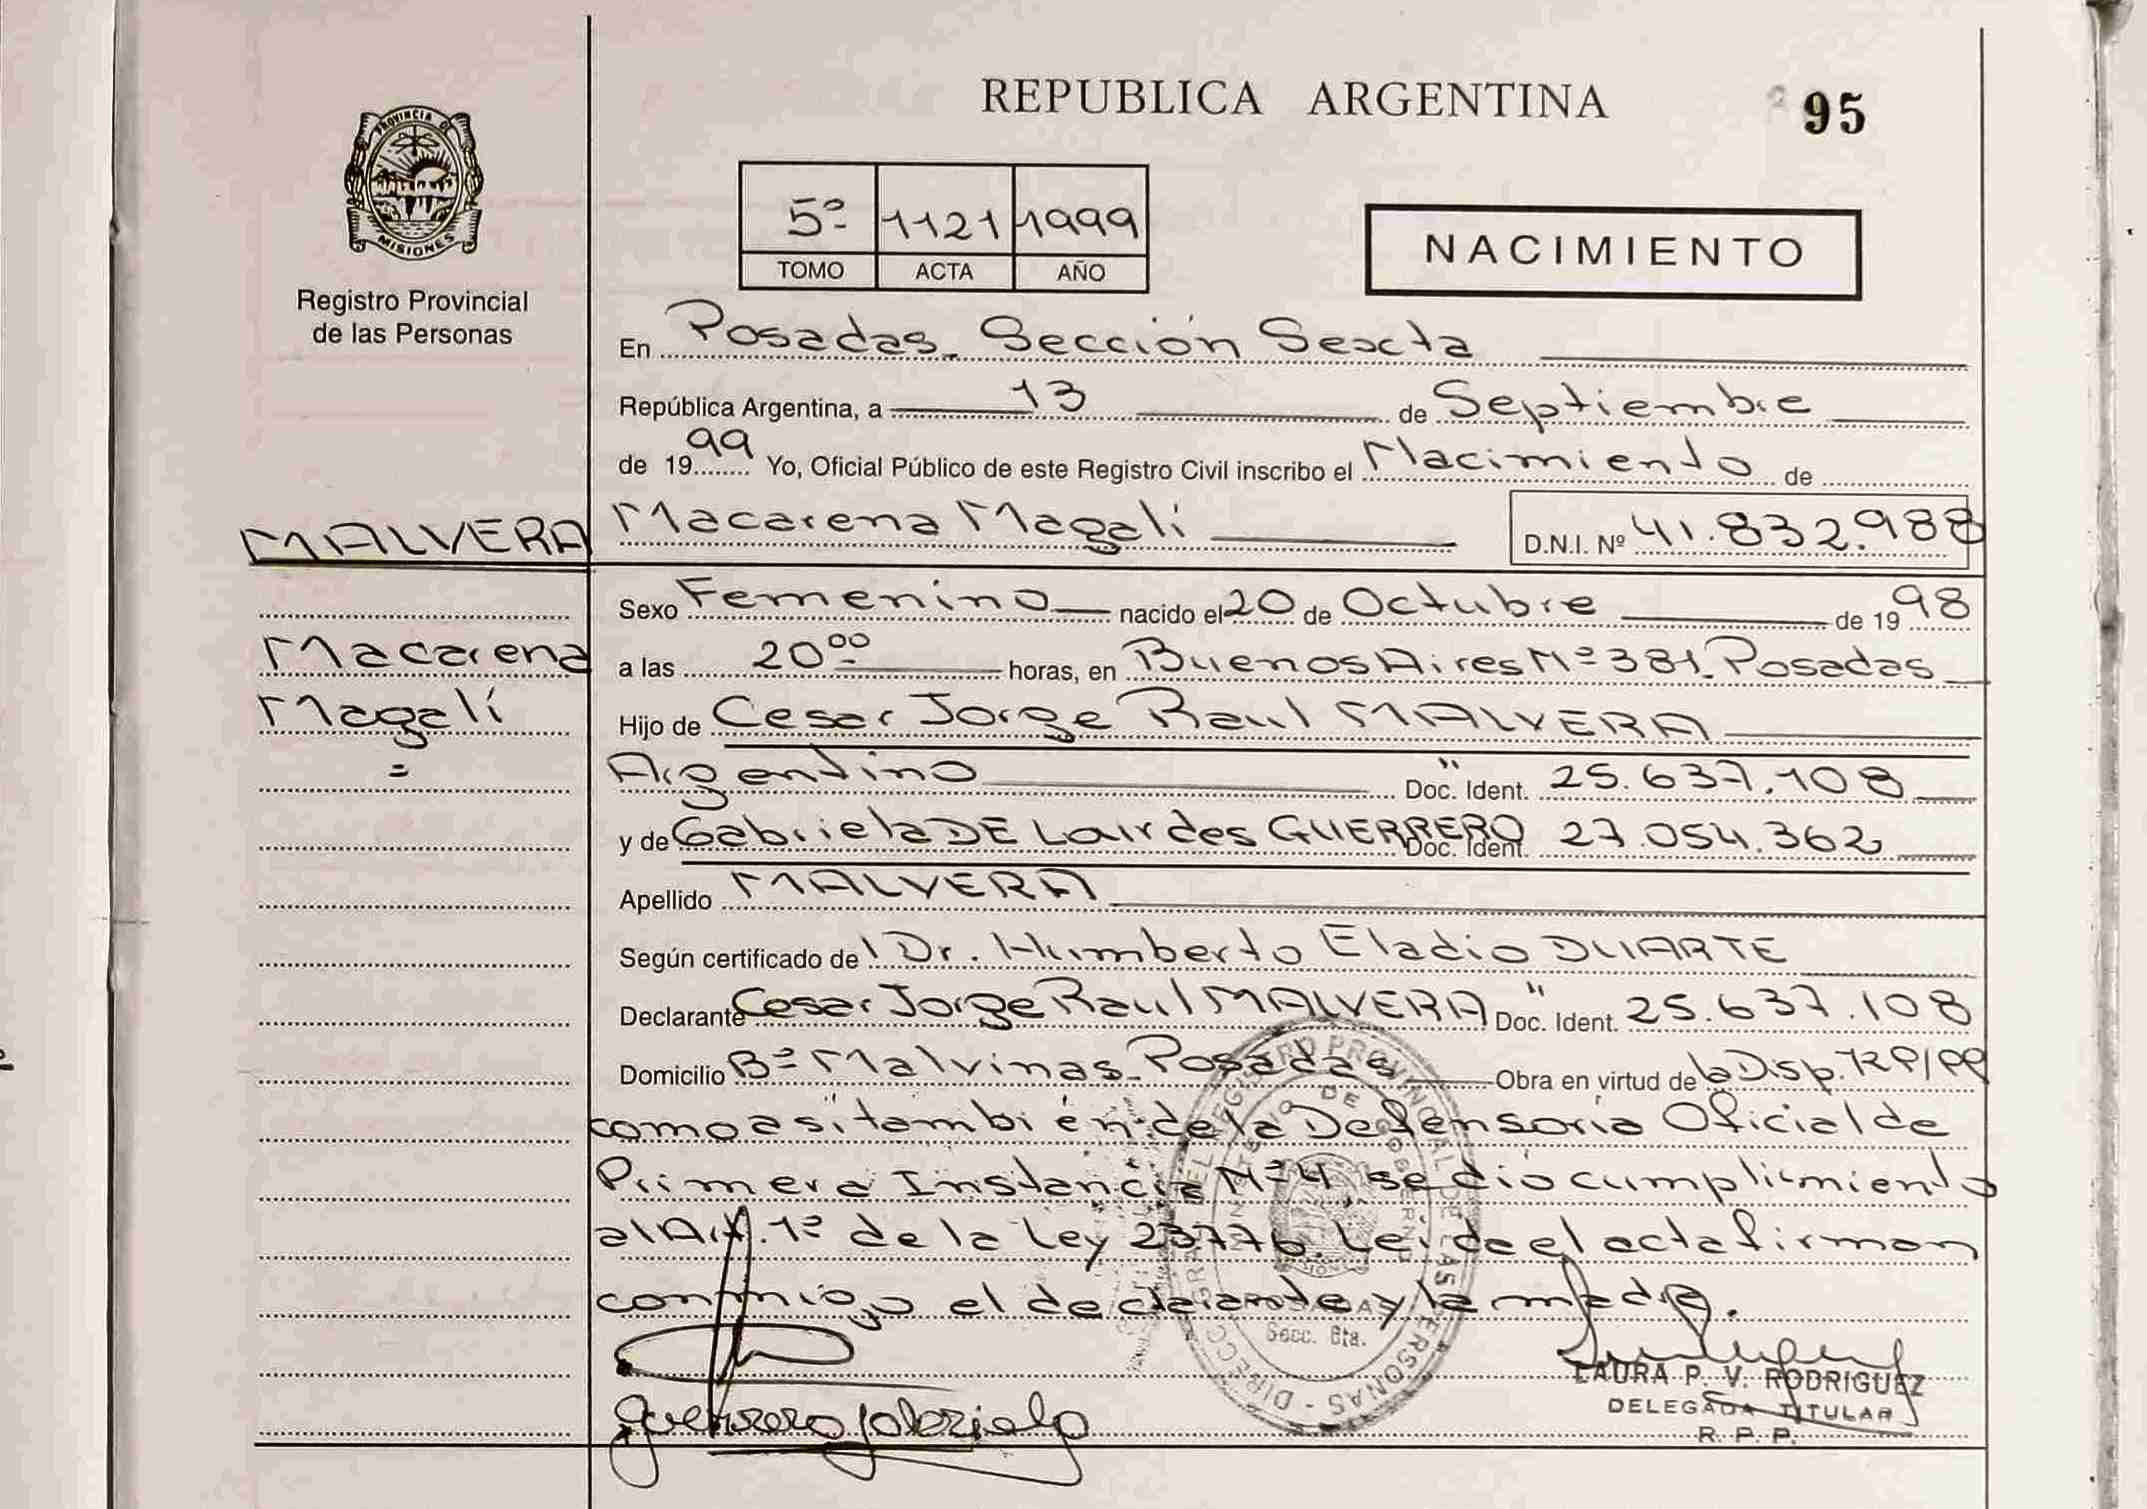 REPUBLICA ARGENTINA
95
PROVINCIA DE
MISIONES
Registro Provincial
de las Personas
5º 1121 1999
TOMO ACTA AÑO
NACIMIENTO
En Posadas. Sección Sexta
República Argentina, a 13 de Septiembre
de 1999 Yo, Oficial Público de este Registro Civil inscribo el Nacimiento de
MALVERA
Macarena Magalí D.N.I. Nº 41.832.988
Sexo Femenino nacido el 20 de Octubre de 1998
Macarena
Magalí
a las 20⁰⁰ horas, en Buenos Aires Nº 381. Posadas
Hijo de Cesar Jorge Raul MALVERA
Argentino Doc. Ident. 25.637.108
y de Gabriela DE Lourdes GUERRERO Doc. Ident. 27.054.362
Apellido MALVERA
Según certificado de Dr. Humberto Eladio DUARTE
Declarante Cesar Jorge Raul MALVERA Doc. Ident. 25.637.108
Domicilio Bº Malvinas. Posadas Obra en virtud de la Disp.
como asi también de la Defensoria Oficial de
Primera Instancia Nº 4, se dió cumplimiento
al Art. 1º de la Ley 23776. Leida el acta firman
conmigo el declarante y la madre.
Guerrero Gabriela
DIRECC. GRAL. DEL REGISTRO PROVINCIAL DE LAS PERSONAS
MINISTERIO DE GOBIERNO
POSADAS
Secc. 6ta.
LAURA P. V. RODRIGUEZ
DELEGADA TITULAR
R. P. P.